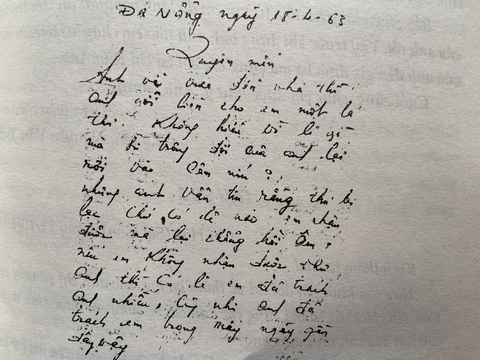 Đà Nẵng ngày 18-4-63
Quyên mến
Anh về vào đến nhà thì
anh gởi liền cho em một lá
thư. Không hiểu vì lí gì
mà sự trông đợi của anh lại
rơi vào câm nín?,
nhưng anh vẫn tin rằng thư bị
lạc chứ có lẽ nào em nhận
được mà lại không hồi âm,
nếu em không nhận được thư
anh thì có lẽ em đã trách
anh nhiều, cũng như anh đã
trách em trong mấy ngày gần
đây vậy